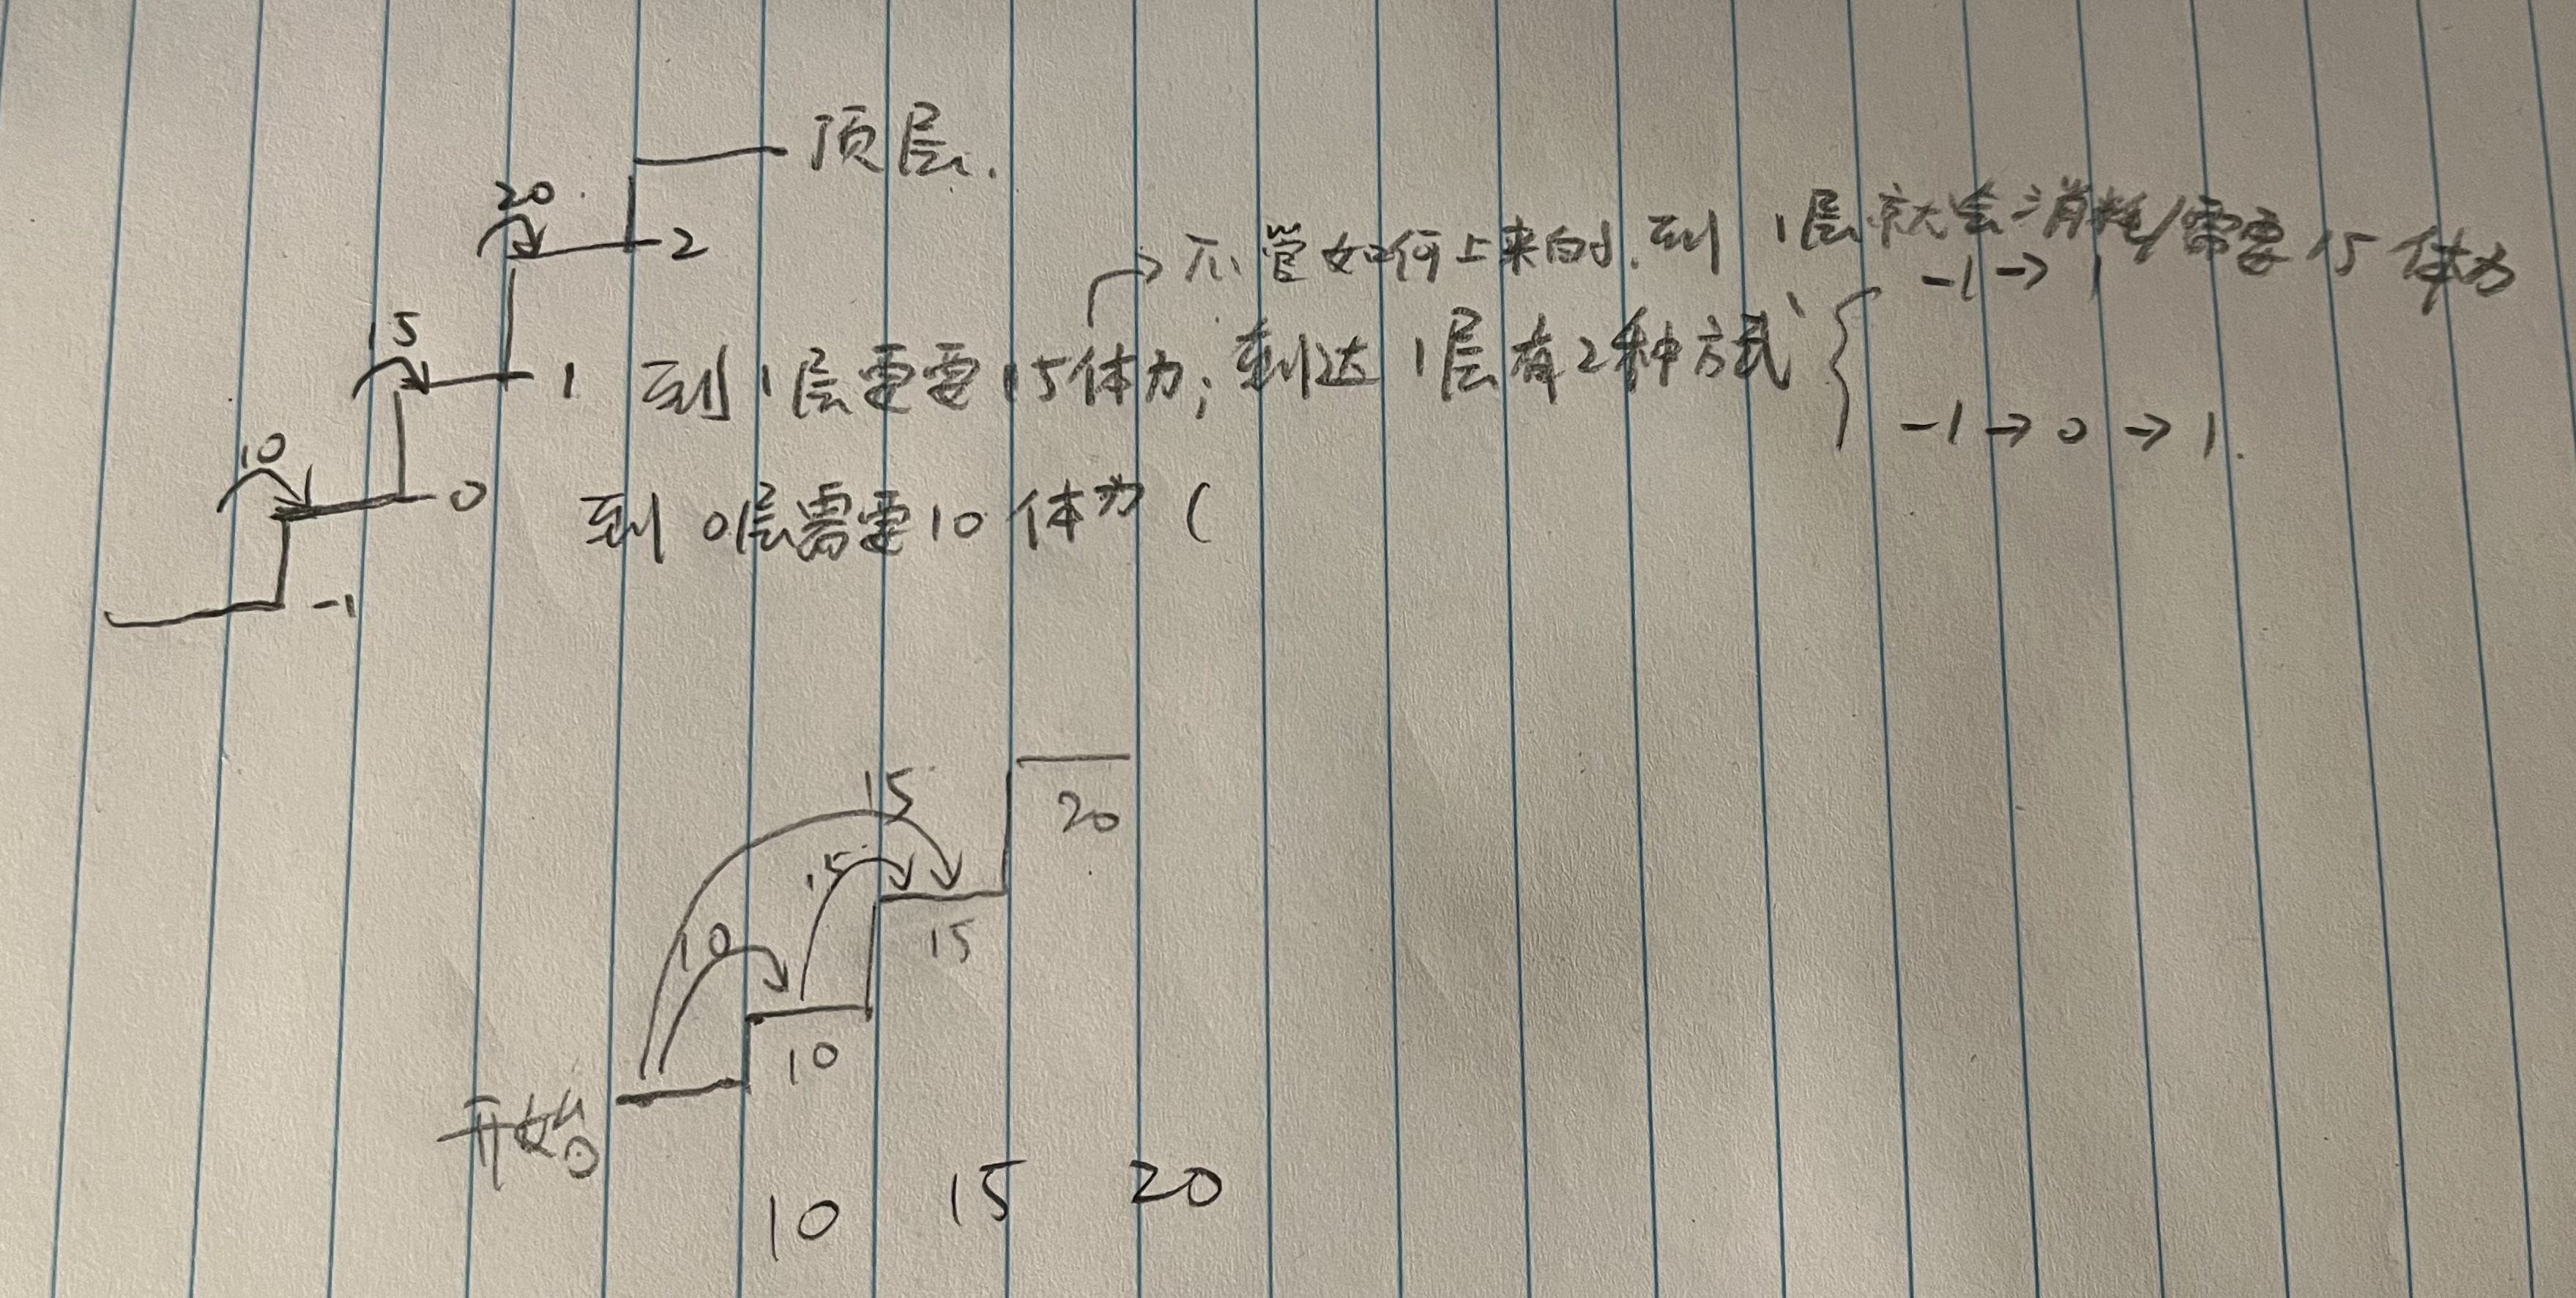 顶层.
20
2
不管如何上来的.到1层就会消耗/需要15体力
-1→1
15
1 到1层需要15体力;到达1层有2种方式
-1→0→1.
10
0 到0层需要10体力(
-1
15
20
15
10
15
10
开始
10 15 20